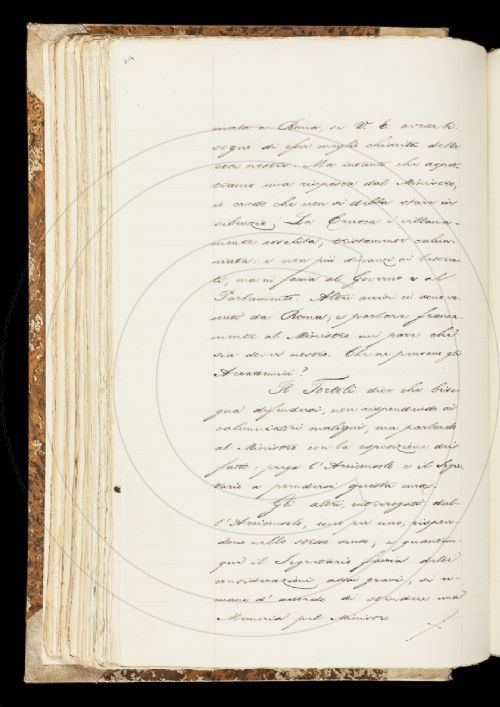 mata a Roma, se V. E. avesse bi-
sogno di esser meglio chiarita delle
cose nostre. Ma intanto che aspet-
tiamo una risposta dal Ministro,
io credo che non si debba stare in
silenzio. La Crusca è villana-
mente assalita, tristamente calun-
niata: e non più dinanzi ai letterа-
ti, ma in faccia al Governo e al
Parlamento. Altri avvisi ci sono ve-
nuti da Roma; e parlare franca-
mente al Ministro mi pare che
sia dover nostro. Che ne pensano gli
Accademici?
Il Tortoli dice che biso-
gna difendersi, non rispondendo ai
calunniatori maligni, ma parlando
al Ministro con la esposizione dei
fatti. prega l'Arciconsolo e il Segre-
tario a prendersi questa cura.
Gli altri, interrogati dal-
l'Arciconsolo, uno per uno, rispon-
dono nello stesso senso; e quantun-
que il Segretario faccia delle
considerazioni assai gravi, si ri-
mane d'accordo di stendere una
Memoria pel Ministro